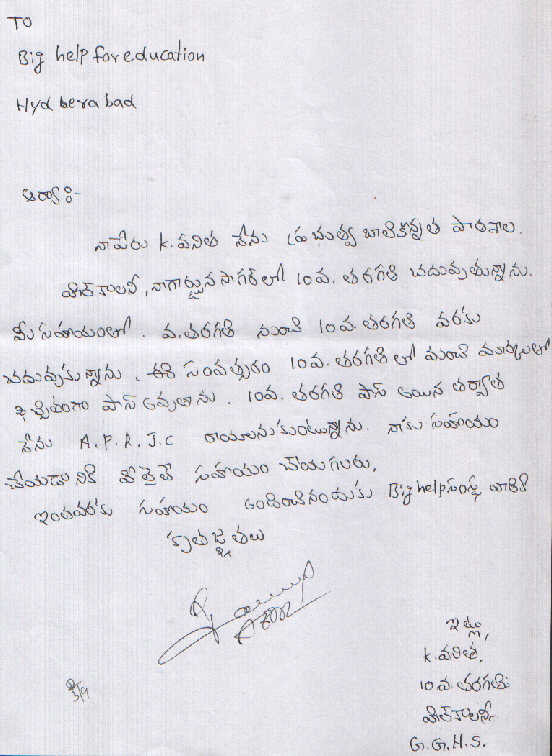 TO
Big help for education
Hyd bera bad
ఆర్యా:-
నా పేరు K. వనిత నేను ప్రభుత్వ బాలికోన్నత పాఠశాల.
పైలాన్‌కాలనీ, నాగార్జున సాగర్‌లో 10వ. తరగతి చదువుతున్నాను.
మీ సహాయంతో . వ.తరగతి నుంచి 10వ.తరగతి వరకు
చదువుకున్నాను. ఈ సంవత్సరం 10వ. తరగతి లో మంచి మార్కులతో
ఖచ్చితంగా పాస్ అవుతాను. 10వ. తరగతి పాస్ అయిన తర్వాత
నేను A.P.R.J.C రాయాలనుకుంటున్నాను. నాకు సహాయం
చేయడానికి వీలైతే సహాయం చేయగలరు.
ఇంతవరకు సహాయం అందించినందుకు Big help సంస్థ వారికి
కృతజ్ఞతలు
ఇట్లు,
K. వనిత,
10వ. తరగతి
పైలాన్‌కాలనీ
G.G.H.S.